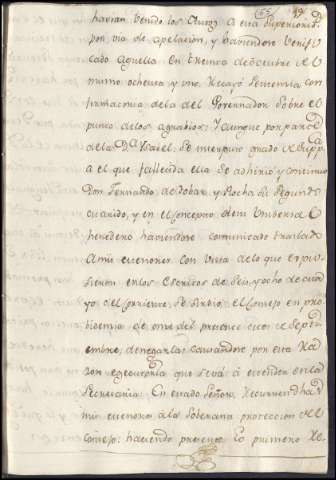 havian venido los Autos A esta Superiorid.d
por via de apelacion, y haviendose verifi
cado aquella en treinta de octubre de
mismo ochenta y uno, recayó sentencia con
firmatoria de la del Governador sobre el
punto de los aguadios; Y aunque por parte
de la D.a Isabel, se interpuso grado de Supp.ca
a el que fallecida ella se adhirió y continuó
Don Fernando de Tobar y Rocha su segundo
marido, y en el concepto de su universal
heredero haviendose comunicado traslado
A mis menores con vista de lo que expu
sieron en los Escritos de seis, y ocho de ma
yo del corriente, se sirvió el Consejo en pro
videncia de once del presente mes de Septi
embre, denegarla, causandose por esta ra
zon egecutoria que se vá á extender en la
Secretaria. En este estado Señor, recurren
mis menores á la Soberana proteccion del
Consejo; haciendo presente Lo primero